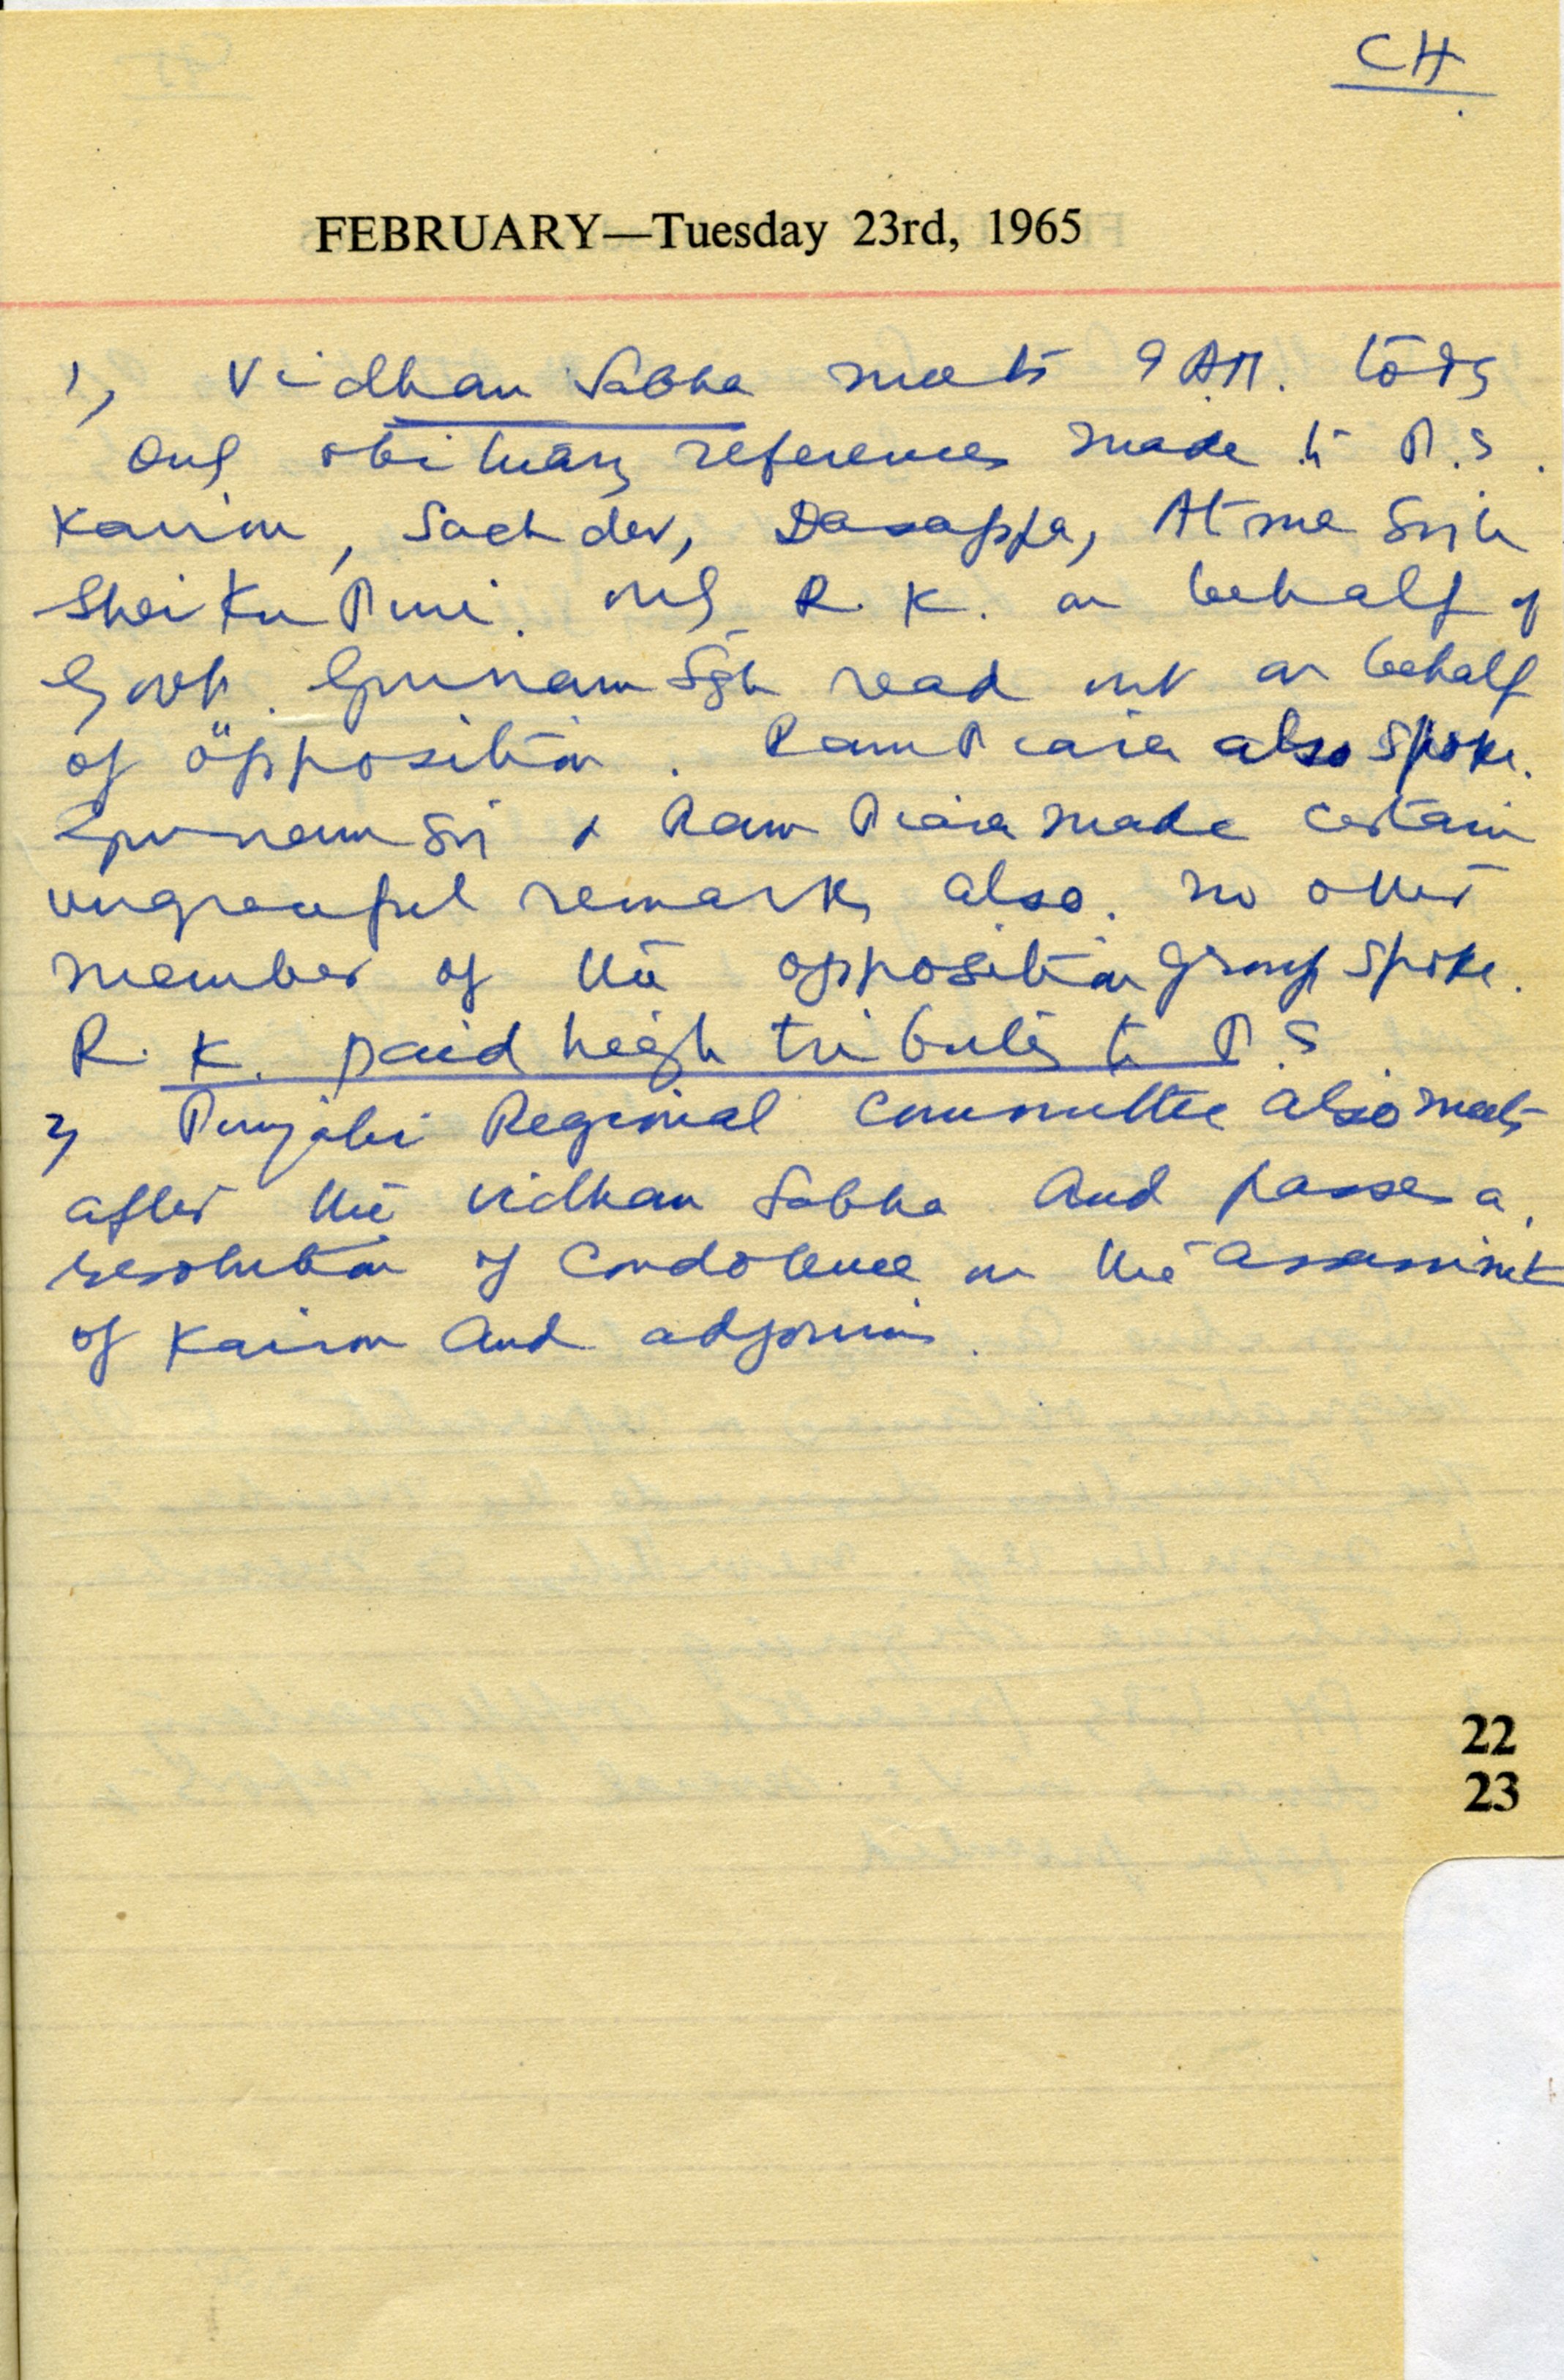 CH
FEBRUARY—Tuesday 23rd, 1965
1, Vidhan Sabha meets 9 A.M. today
only obituary references made to P.S.
Kairon, Sachdev, Dasappa, Atma Singh
Sheikhupuri. only R. K. on behalf of
Govt. Gurnam Sgh read out on behalf
of opposition. Ram Piara also spoke.
Gurnam & Ram Piara made certain
ungraceful remarks also. no other
member of the opposition group spoke.
R. K. paid high tributes to P.S
2, Punjabi Regional Committee also meets
after the Vidhan Sabha and passes a
resolution of Condolence on the
of Kairon and adjourns.
22
23